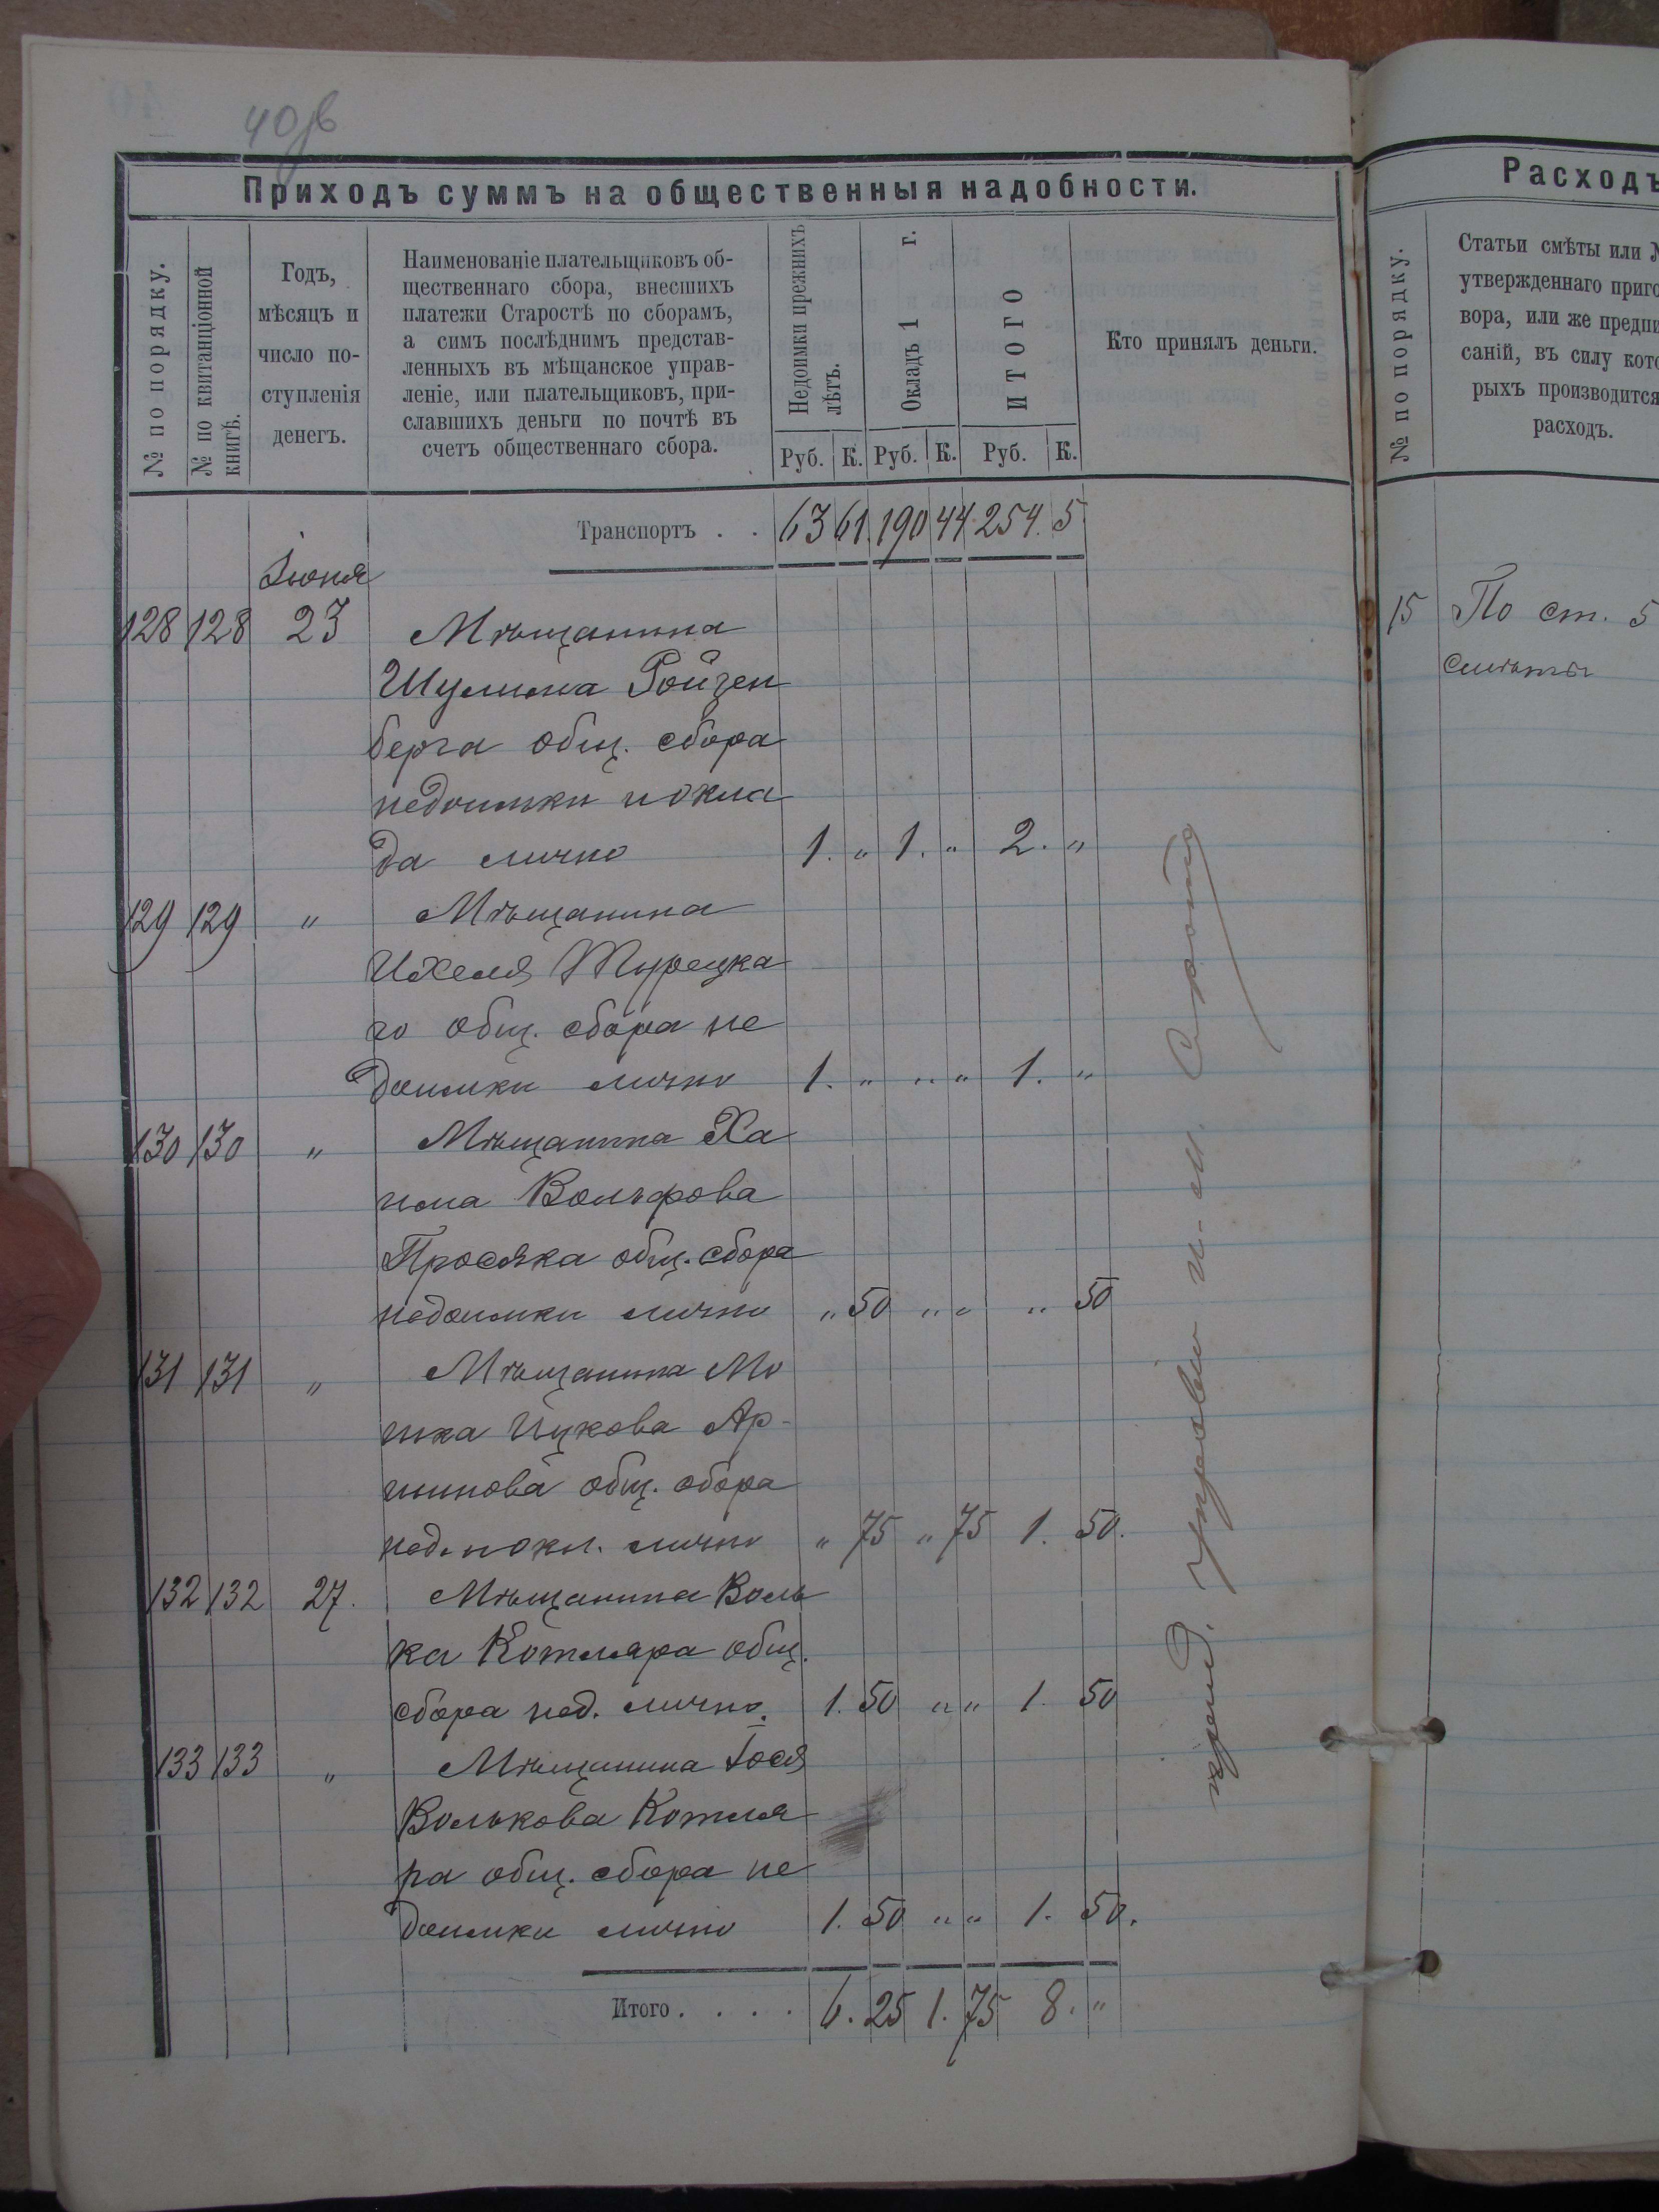 40об
Приходъ суммъ на общественныя надобности.
№ по порядку.
№ по квитанціонной
книгѣ.
Годъ,
мѣсяцъ и
число по-
ступленія
денегъ.
Наименованіе плательщиковъ об-
щественнаго сбора, внесшихъ
платежи Старостѣ по сборамъ,
а симъ послѣднимъ представ-
ленныхъ въ мѣщанское управ-
леніе, или плательщиковъ, при-
славшихъ деньги по почтѣ въ
счетъ общественнаго сбора.
Недоимки прежнихъ
лѣтъ.
Окладъ 1 г.
ИТОГО
Кто принялъ деньги.
Руб. К. Руб. К. Руб. К.
Транспортъ . . 63 61. 190 44 254. 5
Іюня
128 128 23 Мѣщанина
Шулима Ройзен
берга общ. сбора
недоимки и окла
да лично 1. „ 1. „ 2. „
129 129 „ Мѣщанина
Ихеля Турецка
го общ. сбора не
доимки лично 1. „ „ „ 1. „
130 130 „ Мѣщанина Ха
има Вольфова
Просяка общ. сбора
недоимки лично „ 50 „ „ „ 50
131 131 „ Мѣщанина Мо
шка Ицкова Ар-
шинова общ. сбора
нед. и окл. лично „ 75 „ 75 1. 50.
132 132 27. Мѣщанина Воль
ка Котляра общ.
сбора нед. лично. 1. 50 „ „ 1. 50
133 133 „ Мѣщанина Іося
Волькова Котля
ра общ. сбора не
доимки лично 1. 50 „ „ 1. 50.
Итого . . . . 6. 25 1. 75 8. „
Расходъ
№ по порядку.
Статьи смѣты или №
утвержденнаго приго
вора, или же предпи
саній, въ силу кото
рыхъ производится
расходъ.
15 По ст. 5
смѣты